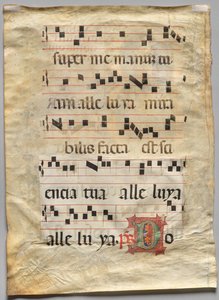 super me manum tu
am alle lu ya mira
bilis facta est sci
encia tua alle luya
alle lu ya. ps Do